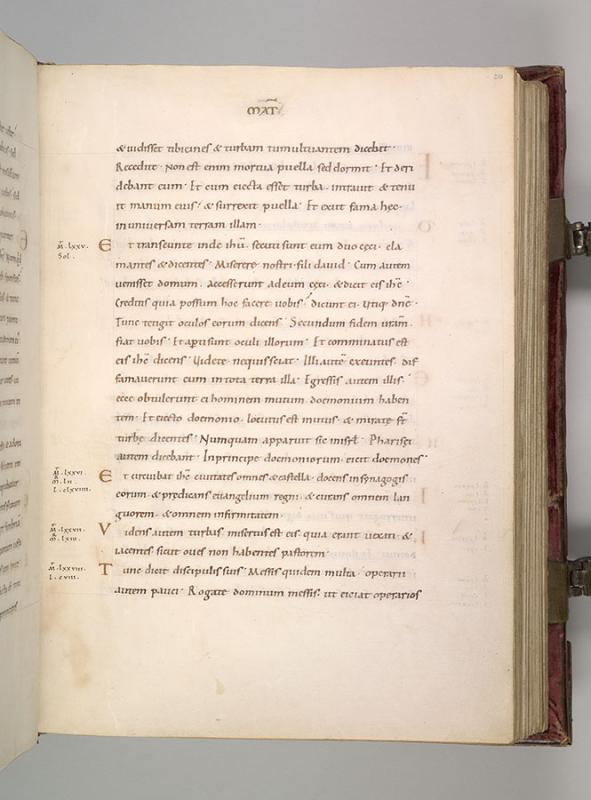 20
MAT̅
& uidisset tibicines & turbam tumultuantem dicebat·
Recedite· Non est enim mortua puella sed dormit· Et deri
debant eum· Et cum eiecta esset turba· intrauit & tenu
it manum eius· & surrexit puella· Et exiit fama hęc·
in uniuersam terram illam·
M̅·LXXV·
Sol·
Et transeunte inde ihu̅· secuti sunt eum duo cęci· cla
mantes & dicentes· Miserere nostri fili dauid· Cum autem
uenisset domum· accesserunt ad eum cęci· & dicit eis ihc̅·
Creditis quia possum hoc facere uobis? dicunt ei· Utique dn̅e·
Tunc tetigit oculos eorum dicens· Secundum fidem ura̅m·
fiat uobis· Et aperti sunt oculi illorum· Et comminatus est
eis ihc̅ dicens· Uidete ne quis sciat· Illi aute̅ exeuntes· dif
famauerunt eum in tota terra illa· Egressis autem illis·
ecce obtulerunt ei hominem mutum· doemonium haben
tem· Et eiecto doemonio· locutus est mutus· & miratę st̅
turbę dicentes· Numquam apparuit sic in isrł· Pharisei
autem dicebant· In principe doemoniorum· eicit doemones·
M̅·LXXVI·
M̅·LII·
L·CLXVIIII·
Et circuibat ihc̅ ciuitates omnes & castella· docens in synagogis
eorum· & prędicans euangelium regni· & curans omnem lan
guorem· & omnem infirmitatem·
M̅·LXXVII·
M̅·LXIII·
Videns autem turbas misertus est eis· quia erant uexati· &
iacentes sicut oues non habentes pastorem·
M̅·LXXVIII·
L·CVIII·
Tunc dicit discipulis suis· Messis quidem multa· operarii
autem pauci· Rogate dominum messis· ut eiciat operarios